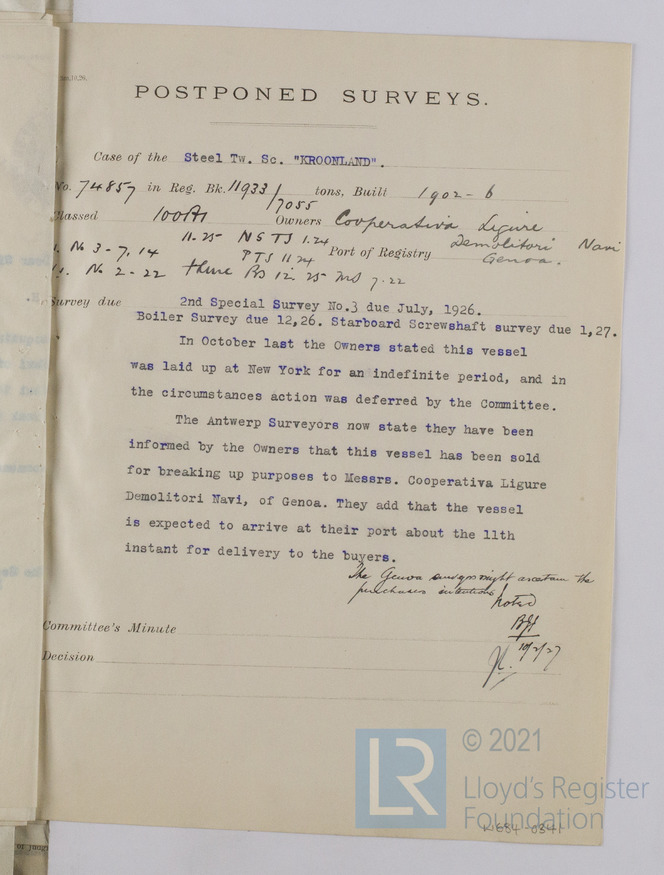 POSTPONED SURVEYS.
Case of the Steel Tw. Sc. "KROONLAND".
No. 74857 in Reg. Bk. 11933/7055 tons, Built 1902-6
Classed 100A1 Owners Cooperativa Ligure
11.25 NS TS 1.24 Demolitori Navi
No 3-7,14 PTS 11 24 Port of Registry Genoa.
No 2-22 BS 12.25 MS 7.22
Survey due 2nd Special Survey No.3 due July, 1926.
Boiler Survey due 12,26. Starboard Screwshaft survey due 1,27.
In October last the Owners stated this vessel
was laid up at New York for an indefinite period, and in
the circumstances action was deferred by the Committee.
The Antwerp Surveyors now state they have been
informed by the Owners that this vessel has been sold
for breaking up purposes to Messrs. Cooperativa Ligure
Demolitori Navi, of Genoa. They add that the vessel
is expected to arrive at their port about the 11th
instant for delivery to the buyers.
The Genoa surveyors might ascertain the
purchasers intentions
Noted
Committee's Minute
10/2/27
Decision
LR © 2021
Lloyd's Register
Foundation